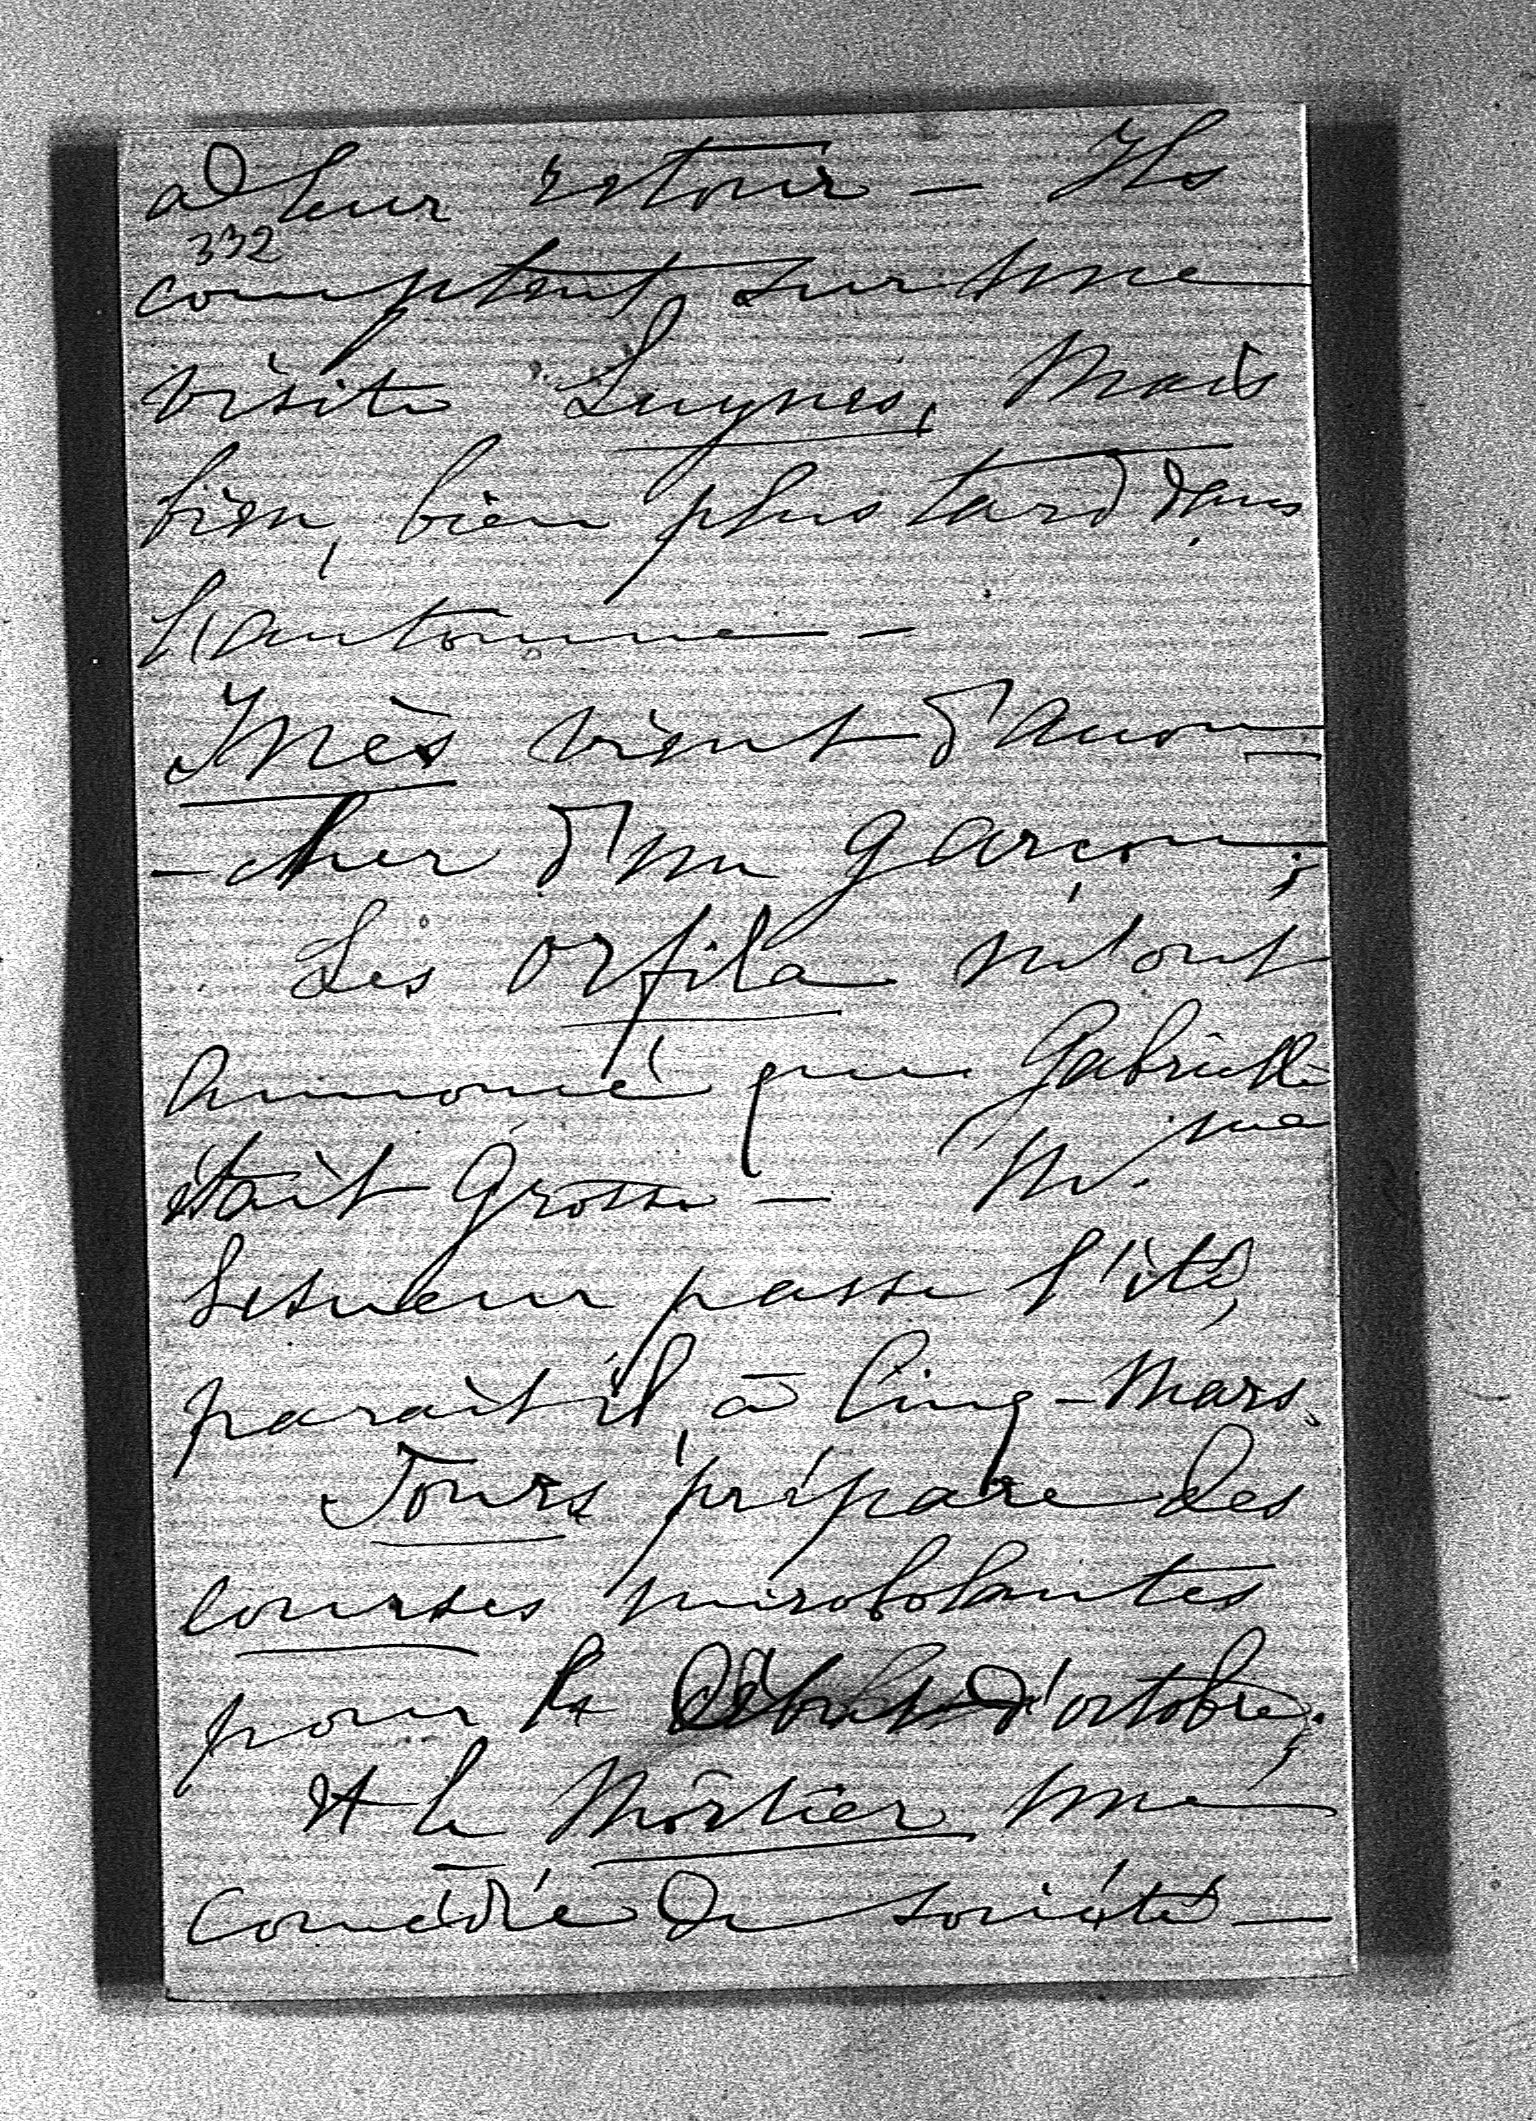 à leur retour – Ils
332
comptent sur une
visite Luynes, Mais
bien, bien plus tard dans
l'automne –
Inès vient d'accou
- cher d'un garçon ;
Les Orfila m'ont
annoncé que Gabrielle
était grosse – Mme
Lesueur passe l'été,
paraît-il, à Cinq-Mars.
Tours prépare des
courses mirobolantes
pour le début d'octobre ;
et le Mortier une
comédie de société –